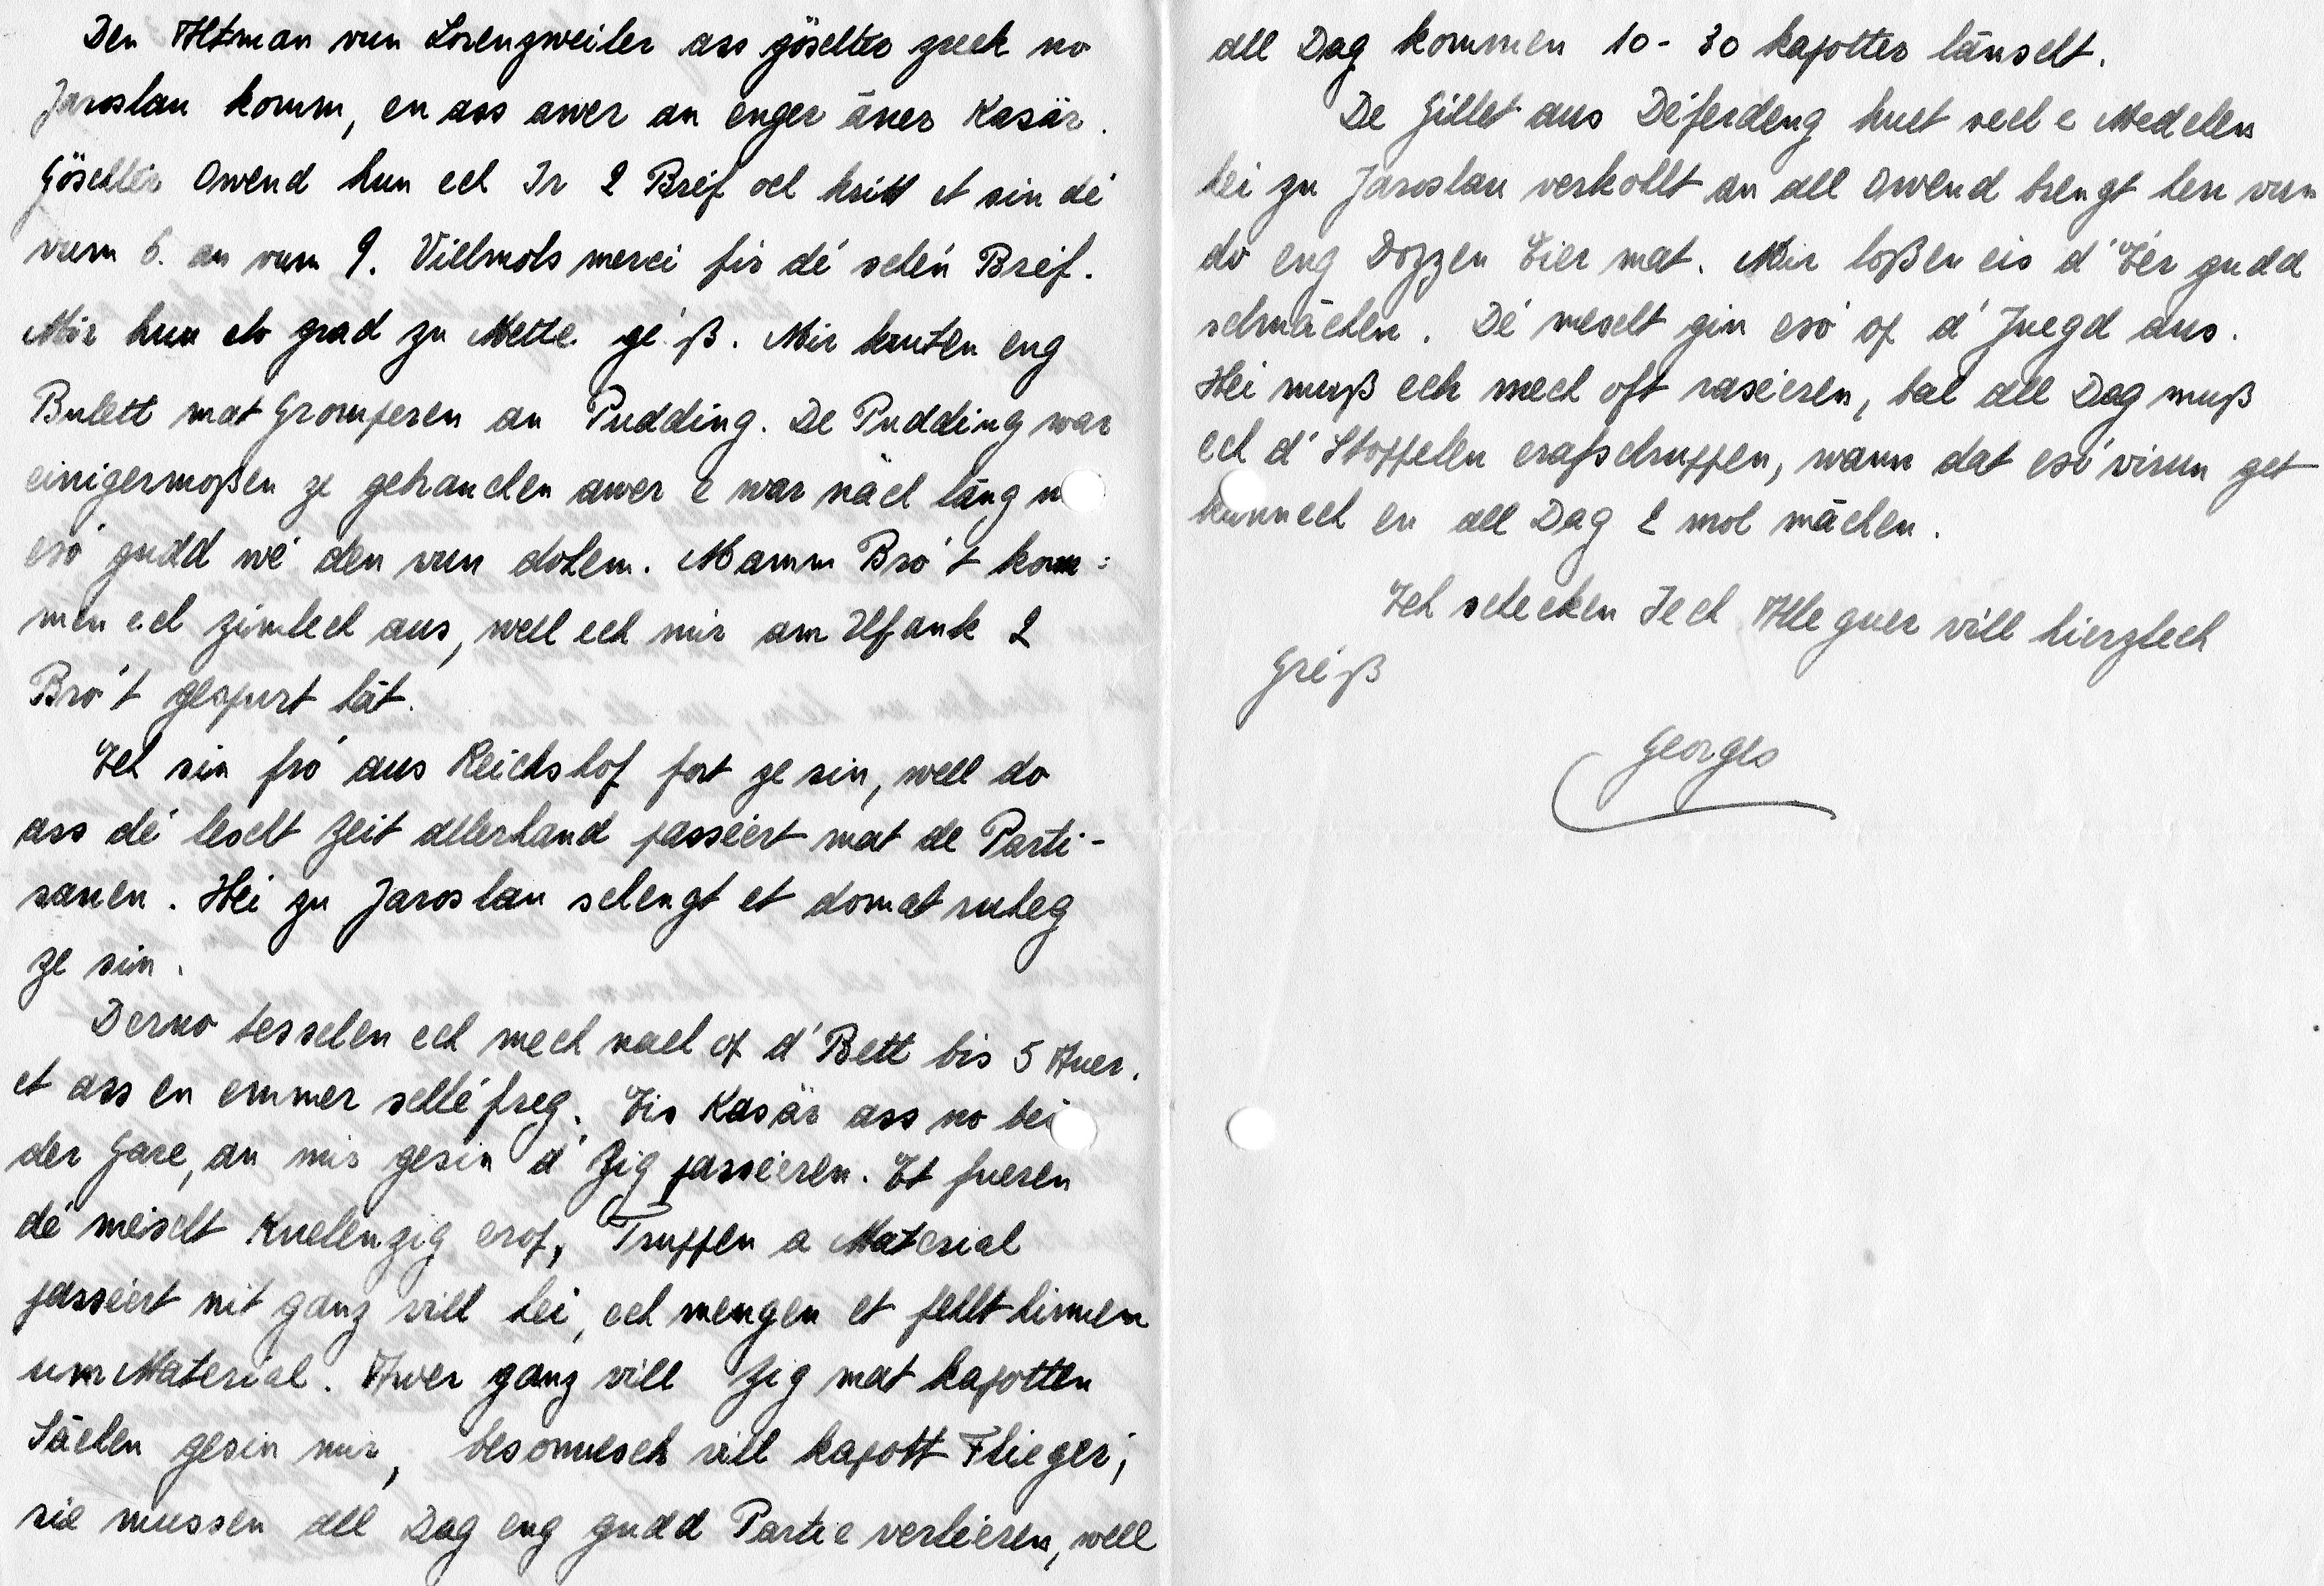 Den Altman vun Lorenzweiler ass göschter zreck no
Jaroslau komm, en ass awer an enger äner Kasär.
Göschter Owend hun ech Ir 2 Bréf och kritt et sin dé
vum 6. an vum 9. Villmols merci fir dé schéin Bréf.
Mir hun elo grad zu Mette gé ß. Mir kruten eng
Bulett mat Gromperen an Pudding. De Pudding war
einigermoßen ze gebrauchen awer e war näch läng n
esó gudd wé den vun dohem. Mamm Bró't kom=
men ech zimlech aus, well ech mir am Ufank 2
Bró't gespurt hät.
Ech sin fró aus Reichshof fort ze sin, well do
ass dé lescht Zeit allerhand passéiert mat de Parti-
sanen. Hei zu Jaroslau schengt et domat ruheg
ze sin.
Derno tesselen ech mech nach op d'Bett bis 5 Auer.
et ass en emmer schléfreg. Eis Kasär ass no bei
der Gare, an mir gesin d'Zig passéieren. Et fueren
dé meischt Kuelenzig erop, Truppen a Material
passéiert nit ganz vill hei, ech mengen et fehlt hinnen
um Material. Awer ganz vill Zig mat kapotten
Sächen gesin mir, besonnesch vill kapott Flieger;
sie mussen all Dag eng gudd Partie verléieren, well
all Dag kommen 10-30 kapotter länscht.
De Gillet aus Déferdeng huet sech e Medchen
hei zu Jaroslau verkollt an all Owend brengt hen vun
do eng Dozzen Eier mat. Mir loßen eis d'Eér gudd
schmächen. Dé mescht gin esó op d'Juegd aus.
Hei muß ech mech oft raséieren, bal all Dag muß
ech d'Stoppelen erafschruppen, wann dat esó virun get
kann ech en all Dag 2 mol mächen.
Ech schecken Iech Alleguer vill hierzlech
Gréiß
Georges